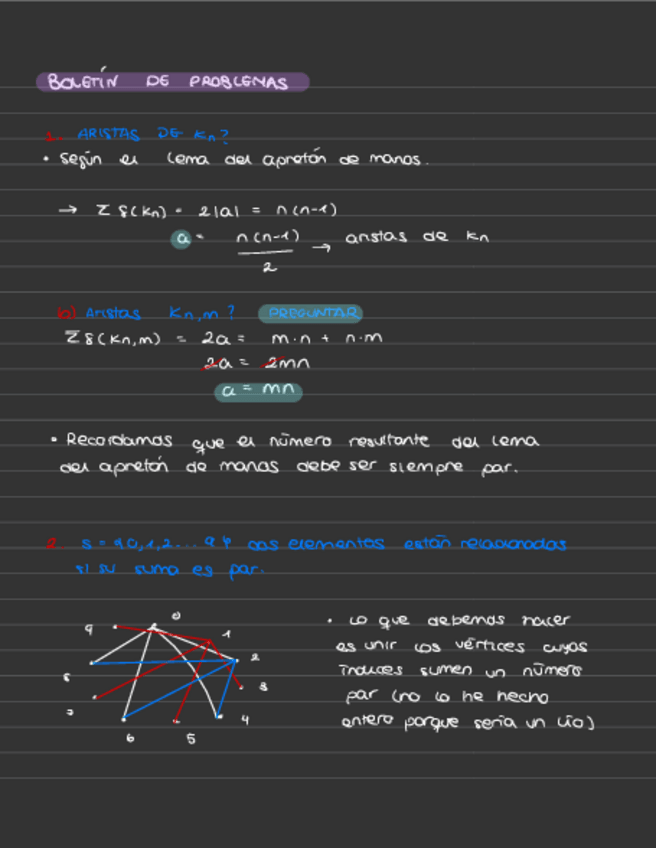 BOLETÍN DE PROBLEMAS
1. ARISTAS DE Kn?
• Según el lema del apretón de manos.
→ Σ δ(Kn) = 2|a| = n(n-1)
a = n(n-1) → aristas de Kn
2
b) Aristas Kn,m? PREGUNTAR
Σδ(Kn,m) = 2a = m·n + n·m
2a = 2mn
a = mn
• Recordamos que el número resultante del lema
del apretón de manos debe ser siempre par.
2. S = {0,1,2...9} Dos elementos están relacionados
si su suma es par.
• Lo que debemos hacer
es unir los vértices cuyos
índices sumen un número
par (no lo he hecho
entero porque sería un lío)
0
9
1
2
8
3
7
4
6
5